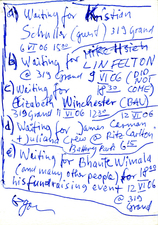 a) Waiting for Kristian
Schuller (and) 319 Grand
6 VI 06 1500 Mike Hsieh
b) Waiting for LIN FELTON
@ 319 Grand 9 VI 06 (DID NOT
c) Waiting for 1830 COME)
Elizabeth Winchester (BAU)
319 Grand 11 VI 06 1230 12 VI 06
d) Waiting for James Carman
+ Juliana Crew @ Ritz Carlton
Battery Park 615
e) Waiting for Bhante Wimala
(and many other people) for 1800
his fundraising event 12 VI 06
@ 319
Grand